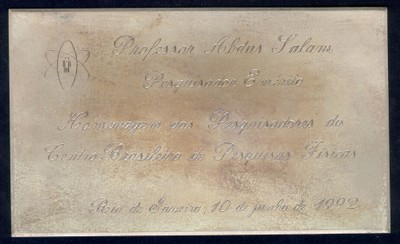 Professor Abdus Salam
Pesquisador Emérito
Homenagem dos Pesquisadores do
Centro Brasileiro de Pesquisas Físicas
Rio de Janeiro, 10 de junho de 1992